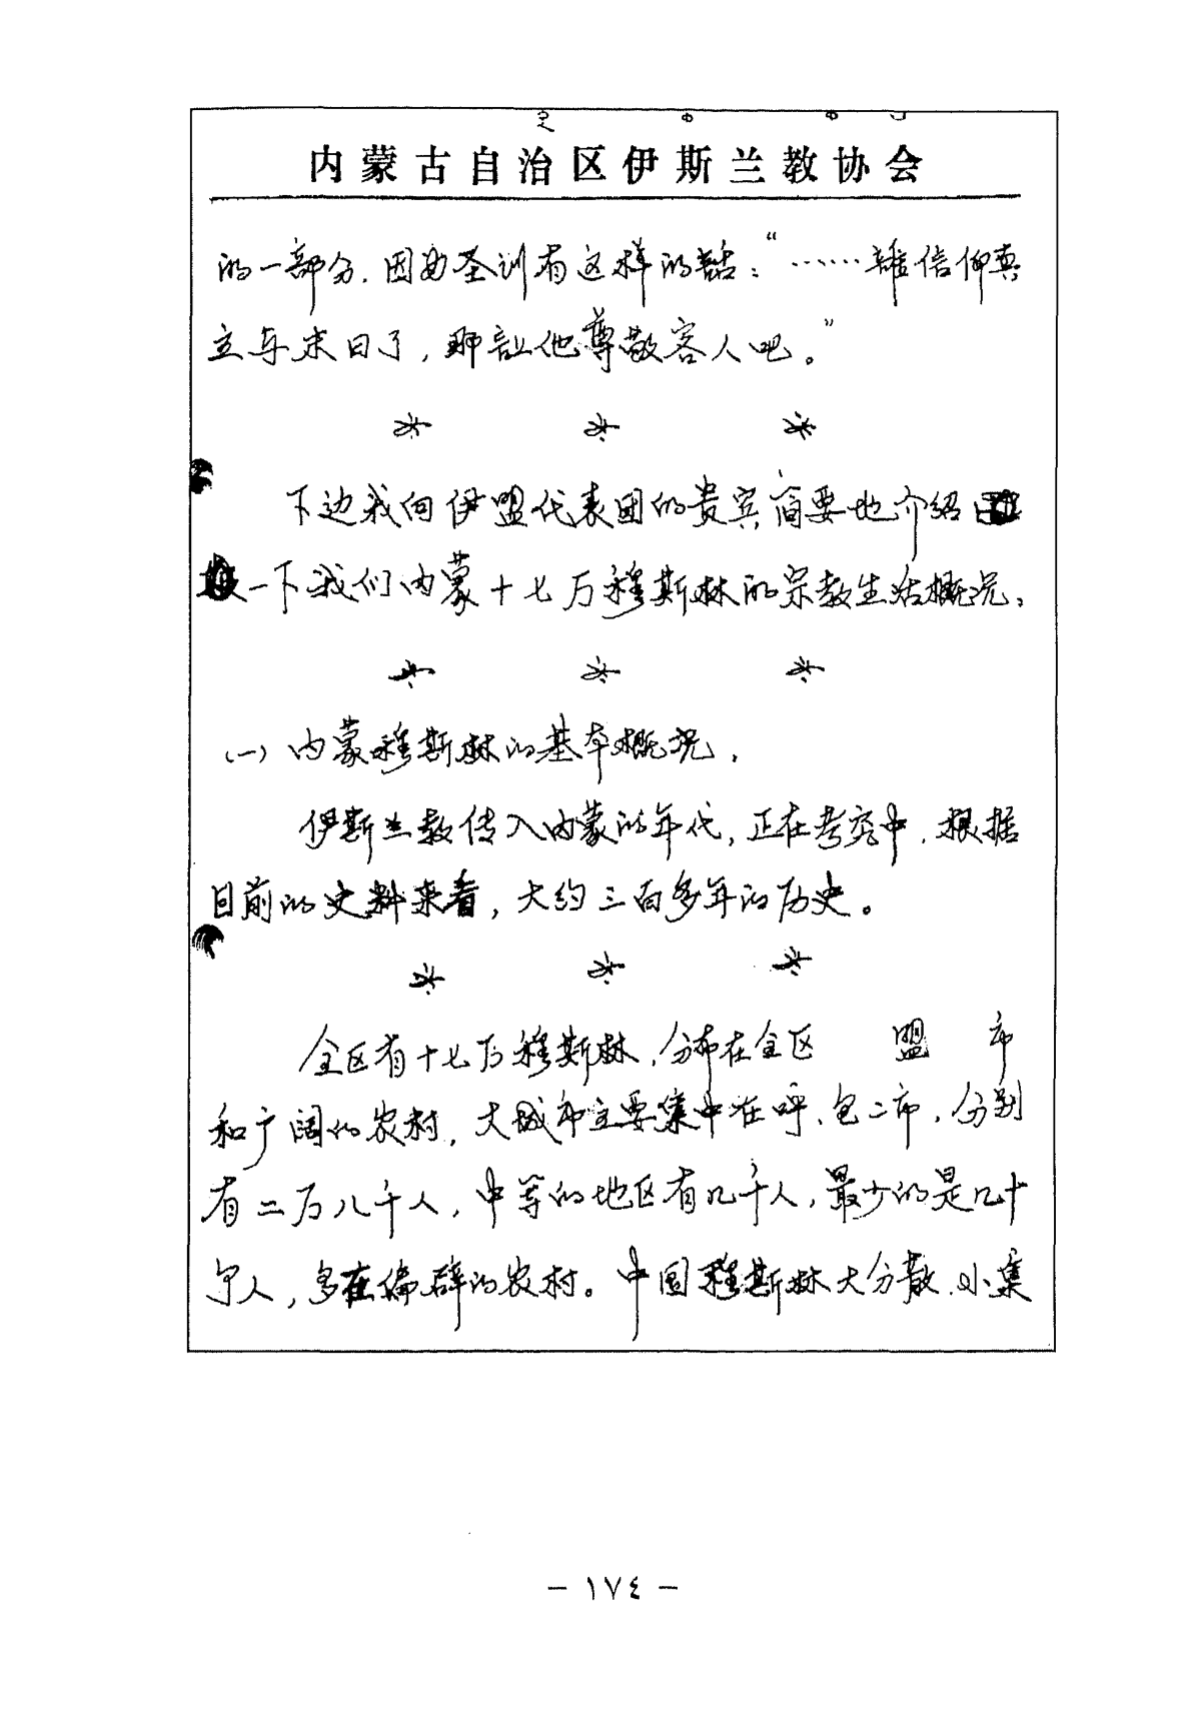 内蒙古自治区伊斯兰教协会
的一部分.因为圣训有这样的话："……誰信仰真
主与末日了,那让他尊敬客人吧。"
* * *
下边我向伊盟代表团的贵宾简要地介绍
一下我们内蒙十七万穆斯林的宗教生活概况,
* * *
(一)内蒙穆斯林的基本概况,
伊斯兰教传入内蒙的年代,正在考究中,根据
目前的史料来看,大约三百多年的历史。
* * *
全区有十七万穆斯林,分布在全区 盟 市
和广阔的农村,大城市主要集中在呼、包二市,分别
有二万八千人,中等的地区有几千人,最少的是几十
个人,多在偏辟的农村。中国穆斯林大分散.小集
- ١٧٤ -